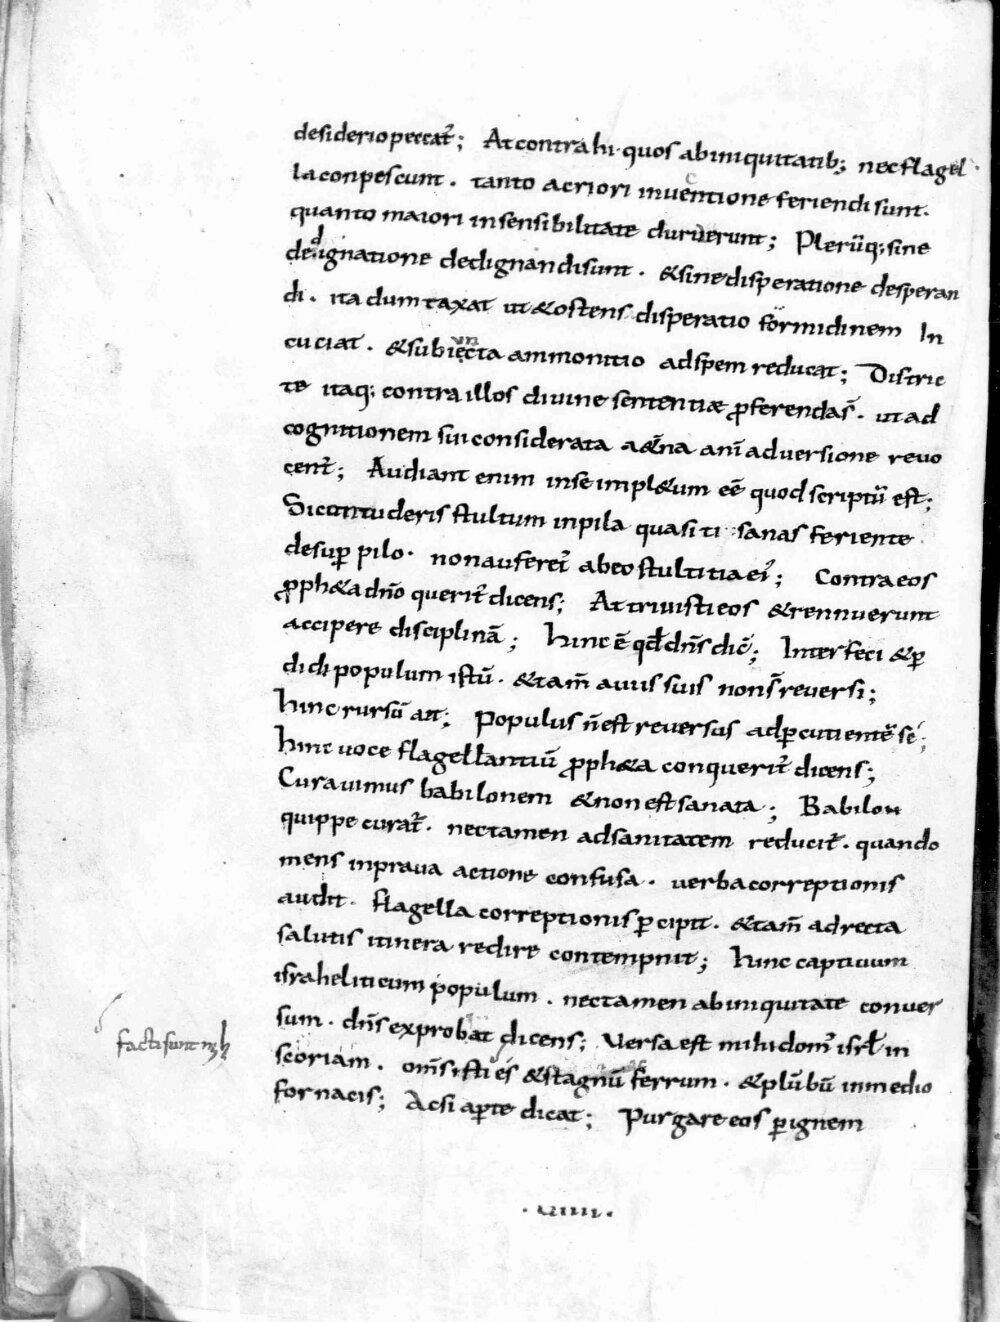 desiderio peccat̄; At contra hi quos ab iniquitatib; nec flagel
la conpescunt. tanto acriori inuentione feriendi sunt.
quanto maiori insensibilitate duruerunt; Plerūq; sine
dedignatione dedignandi sunt. & sine disperatione desperan
di. ita dumtaxat ut & ostens disperatio formidinem In
cuciat. & subiecta ammonitio ad spem reducat; Distric
te itaq; contra illos diuine sententiæ ꝓferendas̄. ut ad
cognitionem sui considerata a&̄na anīaduersione reuo
cent̄; Audiant enim in se impl&um eē quod scriptū est;
Si contuderis stultum in pila quasi tisanas feriente
desuꝑ pilo. non auferet̄ ab eo stultitia eī; Contra eos
ꝓph&a dn̄o querit̄ dicens; Attriuisti eos & rennuerunt
accipere disciplinā; hinc ē qd̄ dn̄s dic̄; Interfeci & ꝑ
didi populum istū. & tam̄ a uiis suis non s̄ reuersi;
hinc rursū ait; Populus n̄ est reuersus ad ꝑcutientē sé;
hinc uoce flagellantiū ꝓph&a conquerit̄ dicens;
Curauimus babilonem & non est sanata; Babilon
quippe curat̄. nec tamen ad sanitatem reducit̄. quando
mens in praua actione confusa. uerba correptionis
audit. flagella correptionis ꝑcipit. & tam̄ ad recta
salutis itinera redire contempnit; hinc captiuum
israheliticum populum. nec tamen ab iniquitate conuer
sum. dn̄s exprobat dicens; Uersa est mihi dom̄ isrł in
scoriam. om̄s isti es & stagnū ferrum. & plūbū in medio
fornacis; Acsi aꝑte dicat; Purgare eos ꝑ ignem
facti sunt m̄
.uiiii.